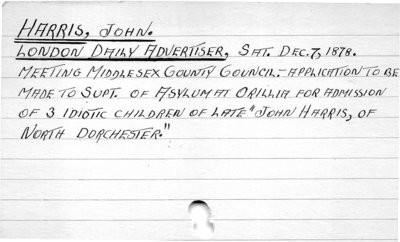 HARRIS, JOHN.
LONDON DAILY ADVERTISER, SAT. DEC. 7, 1878.
MEETING MIDDLESEX COUNTY COUNCIL. - APPLICATION TO BE
MADE TO SUPT. OF ASYLUM AT ORILLIA FOR ADMISSION
OF 3 IDIOTIC CHILDREN OF LATE "JOHN HARRIS, OF
NORTH DORCHESTER."